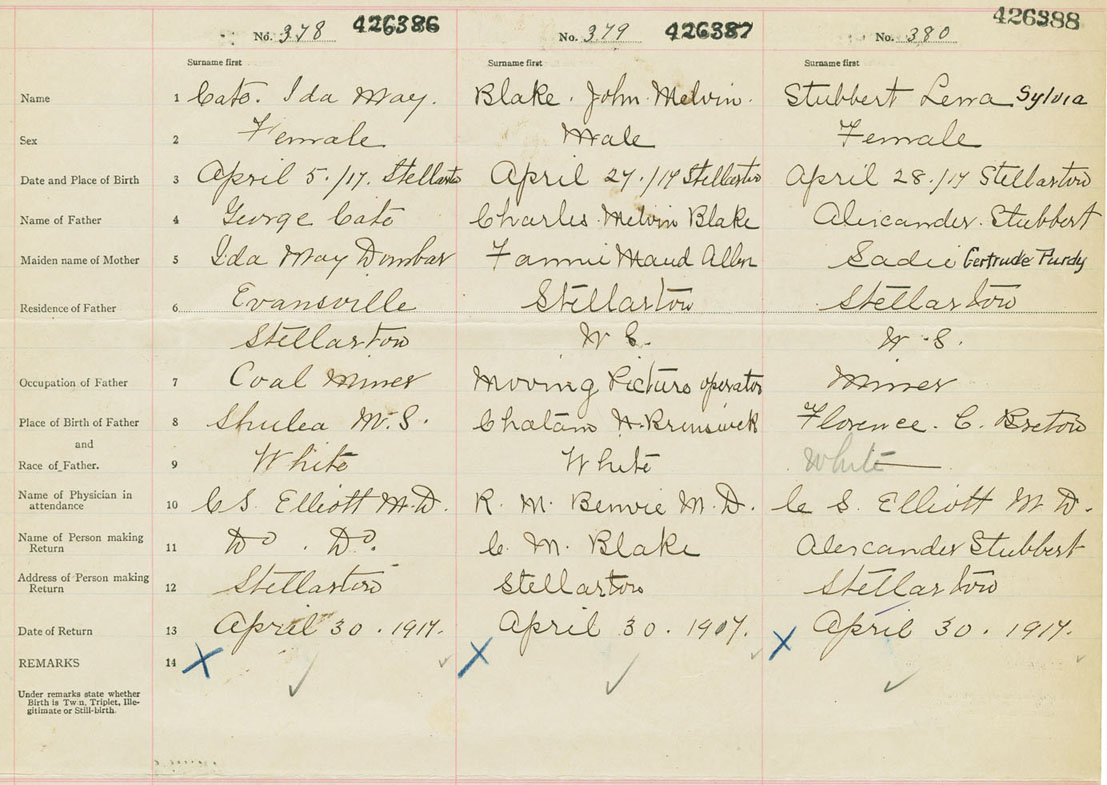 No. 378 426386 No. 379 426387 No. 380 426388
Surname first Surname first Surname first
Name 1 Cato. Ida May. Blake. John Melvin. Stubbert Lena Sylvia
Sex 2 Female Male Female
Date and Place of Birth 3 April 5./17. Stellarton April 27./17 Stellarton April 28./17 Stellarton
Name of Father 4 George Cato Charles Melvin Blake Alexcander Stubbert
Maiden name of Mother 5 Ida May Dunbar Fannie Maud Allen Sadie Gertrude Purdy
Residence of Father 6 Evansville Stellarton Stellarton
Stellarton N S. N. S.
Occupation of Father 7 Coal Miner Moving Picture operator Miner
Place of Birth of Father 8 Shulea N.S. Chatam N. Brunswick Florence. C. Breton
and
Race of Father. 9 White White White
Name of Physician in
attendance 10 C S. Elliott M.D. R. M. Benvie M.D. C S. Elliott M D.
Name of Person making
Return 11 Do. Do. C. M. Blake Alexcander Stubbert
Address of Person making
Return 12 Stellarton Stellarton Stellarton
Date of Return 13 April 30. 1917. April 30. 1917. April 30. 1917.
REMARKS 14 X X X
Under remarks state whether
Birth is Twin, Triplet, Ille-
gitimate or Still-birth.